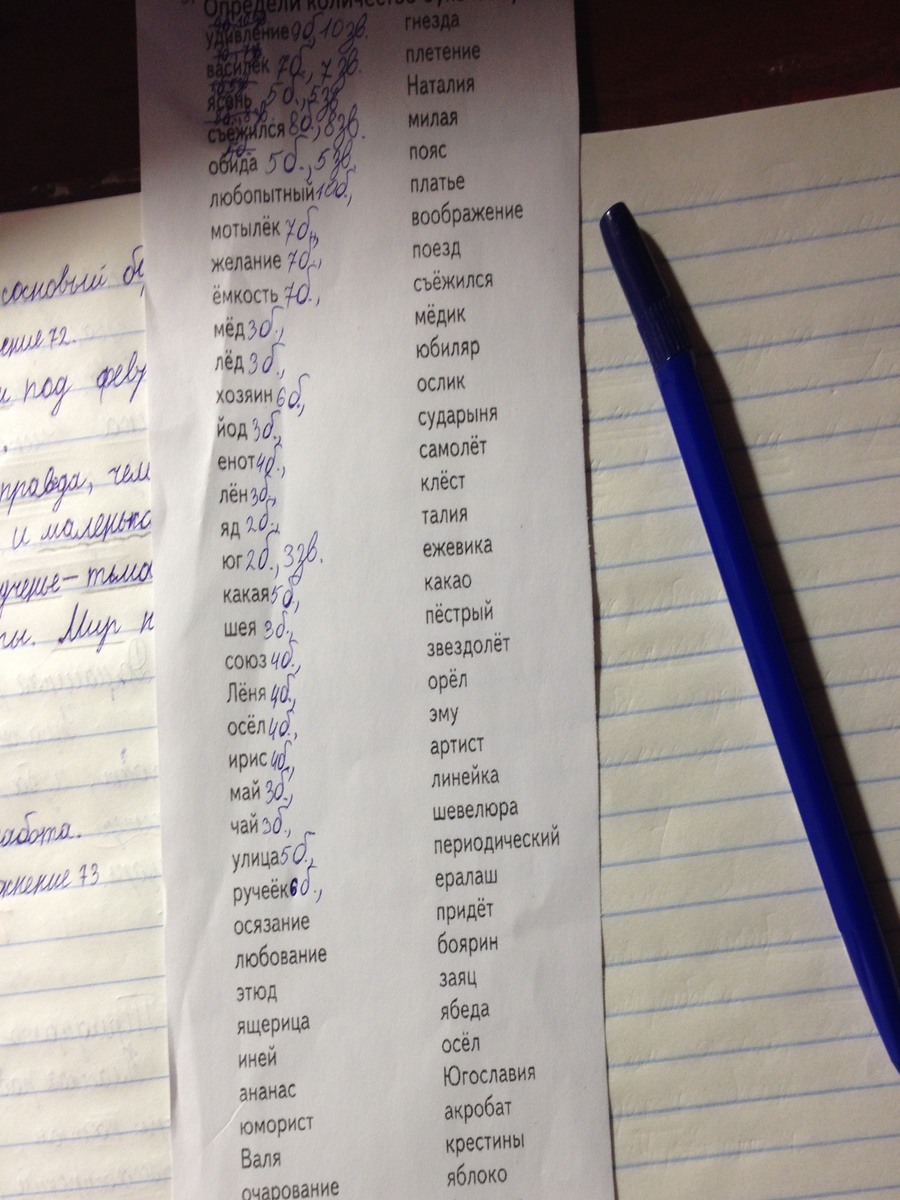 Определи количество
удивление 9б, 10зв.
василёк 7б., 7зв.
ясень 5б., 5зв
съёжился 8б, 8зв.
обида 5б., 5зв.
любопытный 10б,
мотылёк 7б,,
желание 7б.,
ёмкость 7б.,
мёд 3б.,
лёд 3б.,
хозяин 6б.,
йод 3б.,
енот 4б.,
лён 3б.,
яд 2б.,
юг 2б., 3зв.
какая 5б,
шея 3б.,
союз 4б.,
Лёня 4б.,
осёл 4б.,
ирис 4б.,
май 3б.,
чай 3б.,
улица 5б.,
ручеёк 6б.,
осязание
любование
этюд
ящерица
иней
ананас
юморист
Валя
очарование
гнезда
плетение
Наталия
милая
пояс
платье
воображение
поезд
съёжился
мёдик
юбиляр
ослик
сударыня
самолёт
клёст
талия
ежевика
какао
пёстрый
звездолёт
орёл
эму
артист
линейка
шевелюра
периодический
ералаш
придёт
боярин
заяц
ябеда
осёл
Югославия
акробат
крестины
яблоко
сосновый
ение 72.
и под
правда, чем
и
ученье – тьма
Мир
абота.
жнение 73